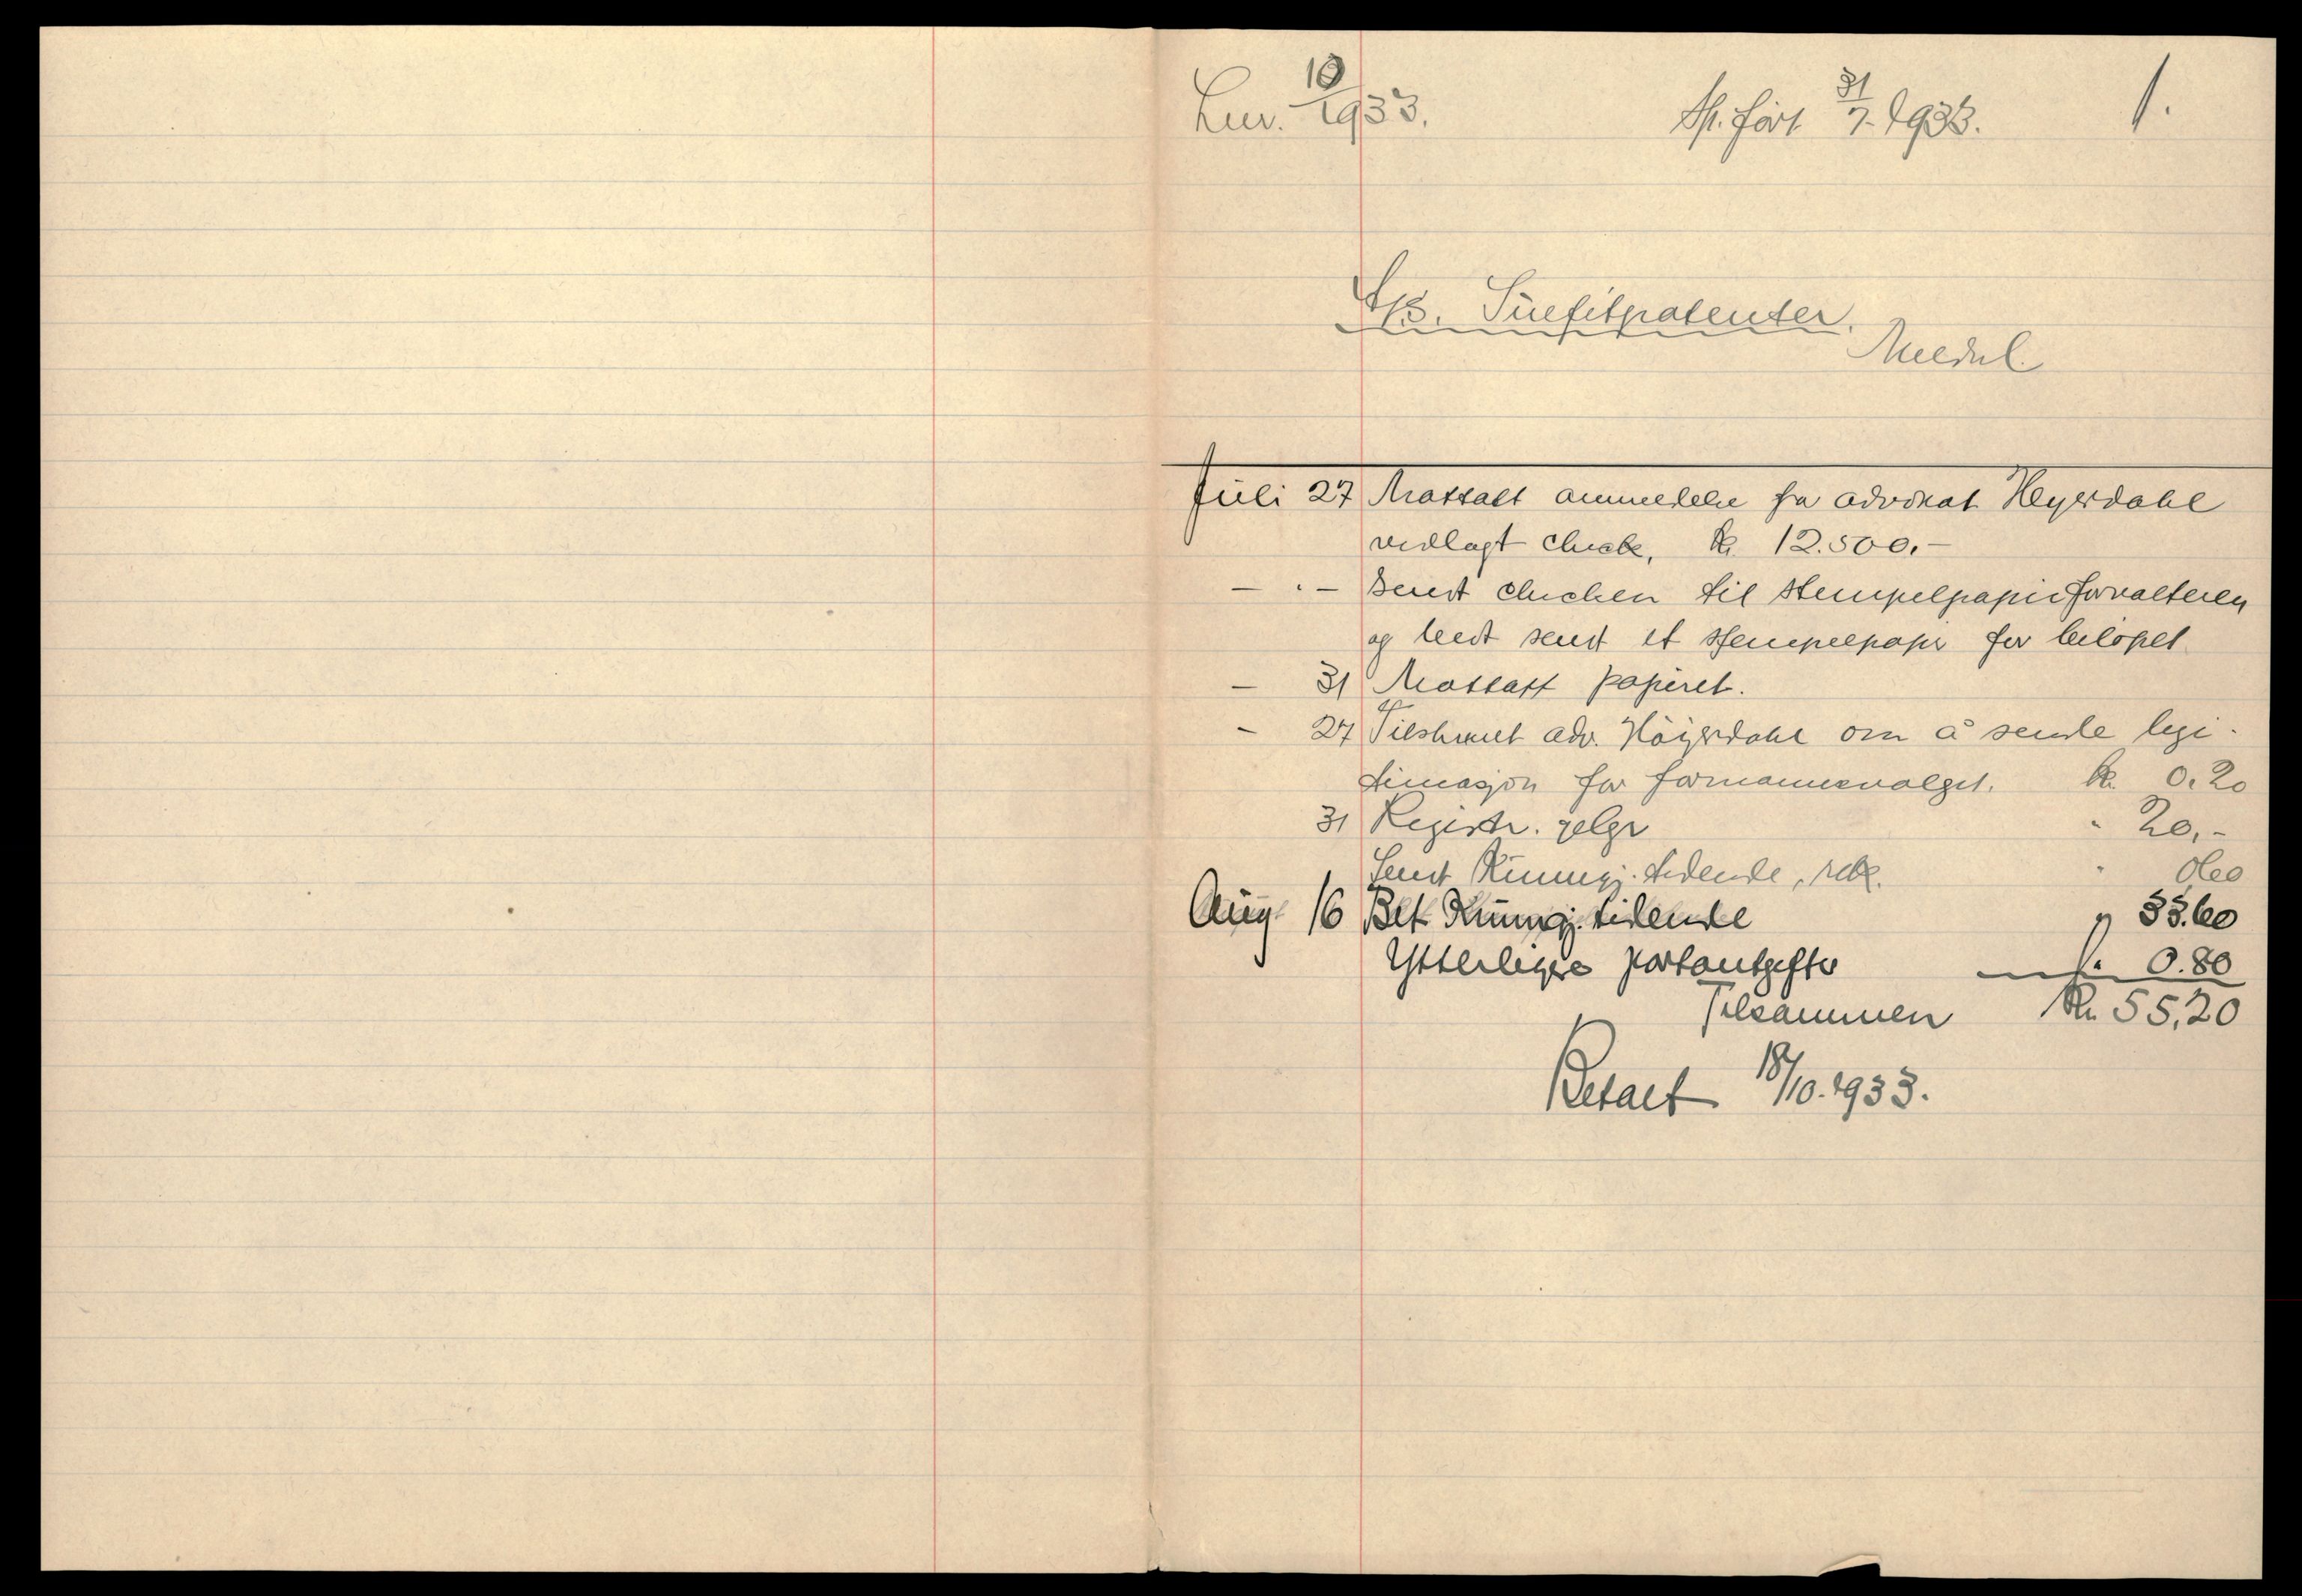 10/1933. 31/7. 1933. 1.
A/S. Suefitpatenter.
Juli 27 Mottatt anmeldelse fra advokat Heyerdahl
vedlagt chek, kr. 12.500.-
- . - Sendt checken til stempelpapirforvalteren
og bedt sendt et stempelpapir for beløpet.
- 31 Mottatt papiret.
- 27 Tilskrevet adv. Höyerdahl om å sende legi-
timasjon for formannsvalget. kr. 0.20
31 Registr. gebyr " 20,-
Sendt Kunngj. tidende, rek. " 0.60
Aug. 16 Bet. Kunngj. tidende " 33.60
Ytterligere portoutgifter " 0.80
Tilsammen Kr. 55,20
Betalt 18/10. 1933.